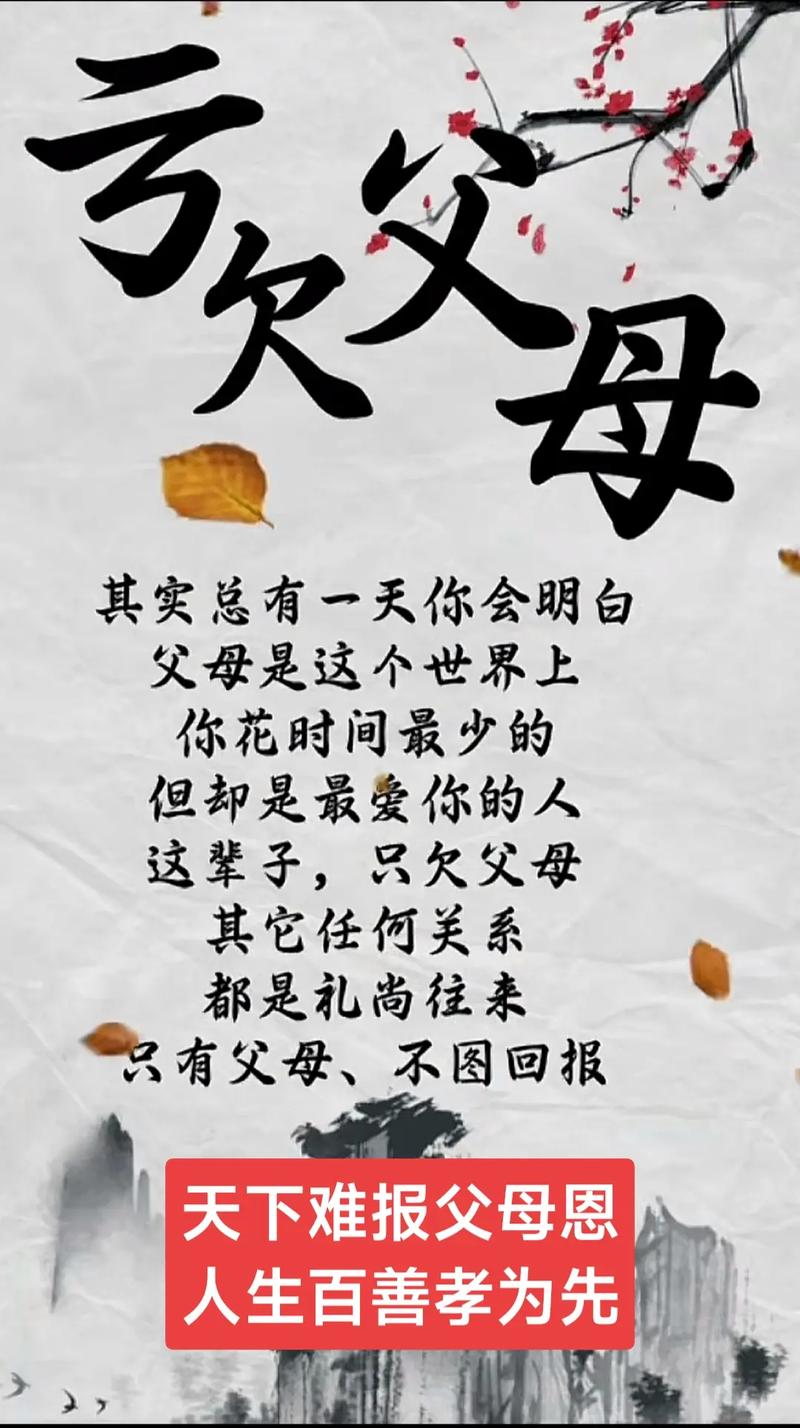 亏欠父母
其实总有一天你会明白
父母是这个世界上
你花时间最少的
但却是最爱你的人
这辈子，只欠父母
其它任何关系
都是礼尚往来
只有父母、不图回报
天下难报父母恩
人生百善孝为先